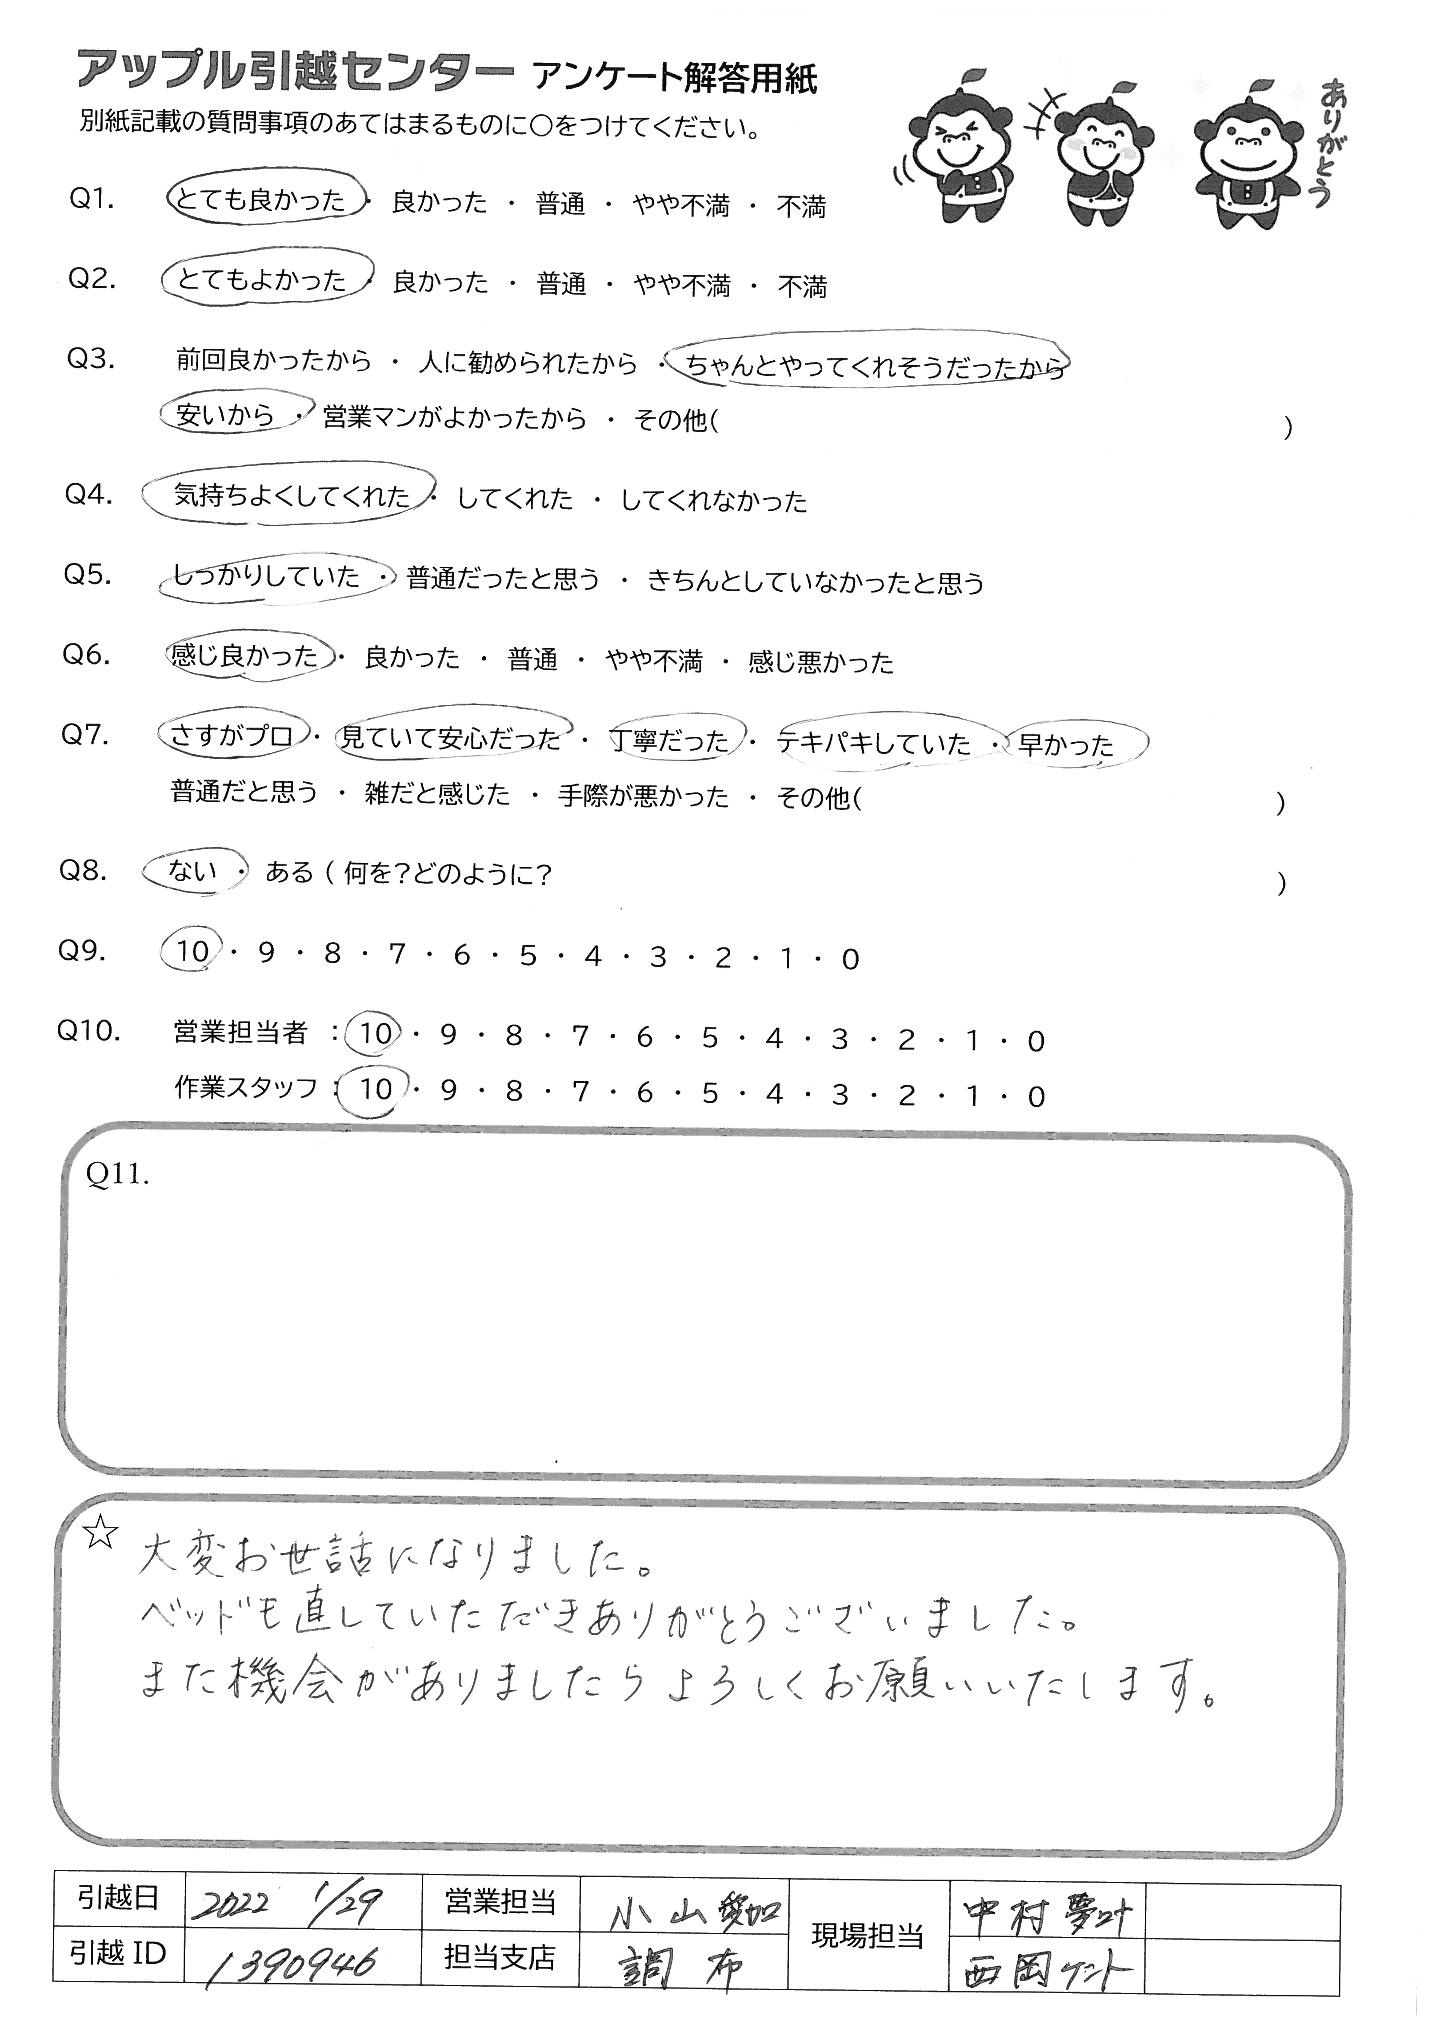 アップル引越センター アンケート解答用紙
別紙記載の質問事項のあてはまるものに○をつけてください。
ありがとう
Q1. とても良かった ・ 良かった ・ 普通 ・ やや不満 ・ 不満
Q2. とてもよかった ・ 良かった ・ 普通 ・ やや不満 ・ 不満
Q3. 前回良かったから ・ 人に勧められたから ・ ちゃんとやってくれそうだったから
安いから ・ 営業マンがよかったから ・ その他( )
Q4. 気持ちよくしてくれた ・ してくれた ・ してくれなかった
Q5. しっかりしていた ・ 普通だったと思う ・ きちんとしていなかったと思う
Q6. 感じ良かった ・ 良かった ・ 普通 ・ やや不満 ・ 感じ悪かった
Q7. さすがプロ ・ 見ていて安心だった ・ 丁寧だった ・ テキパキしていた ・ 早かった
普通だと思う ・ 雑だと感じた ・ 手際が悪かった ・ その他( )
Q8. ない ・ ある ( 何を?どのように? )
Q9. 10 ・ 9 ・ 8 ・ 7 ・ 6 ・ 5 ・ 4 ・ 3 ・ 2 ・ 1 ・ 0
Q10. 営業担当者 : 10 ・ 9 ・ 8 ・ 7 ・ 6 ・ 5 ・ 4 ・ 3 ・ 2 ・ 1 ・ 0
作業スタッフ : 10 ・ 9 ・ 8 ・ 7 ・ 6 ・ 5 ・ 4 ・ 3 ・ 2 ・ 1 ・ 0
Q11.
☆ 大変お世話になりました。
ベッドも直していただきありがとうございました。
また機会がありましたらよろしくお願いいたします。
引越日 2022 1/29 営業担当 小山愛加 現場担当 中村夢叶
引越 ID 1390946 担当支店 調布 西岡ケント